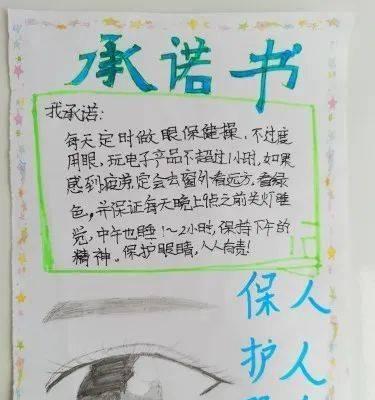 承诺书
我承诺:
每天定时做眼保健操,不过度
用眼,玩电子产品不超过1小时,如果
感到疲劳,定会去窗外看远方,看绿
色,并保证每天晚上9点之前关灯睡
觉,中午也睡1~2小时,保持下午的
精神。保护眼睛,人人有责!
保 人
护 人